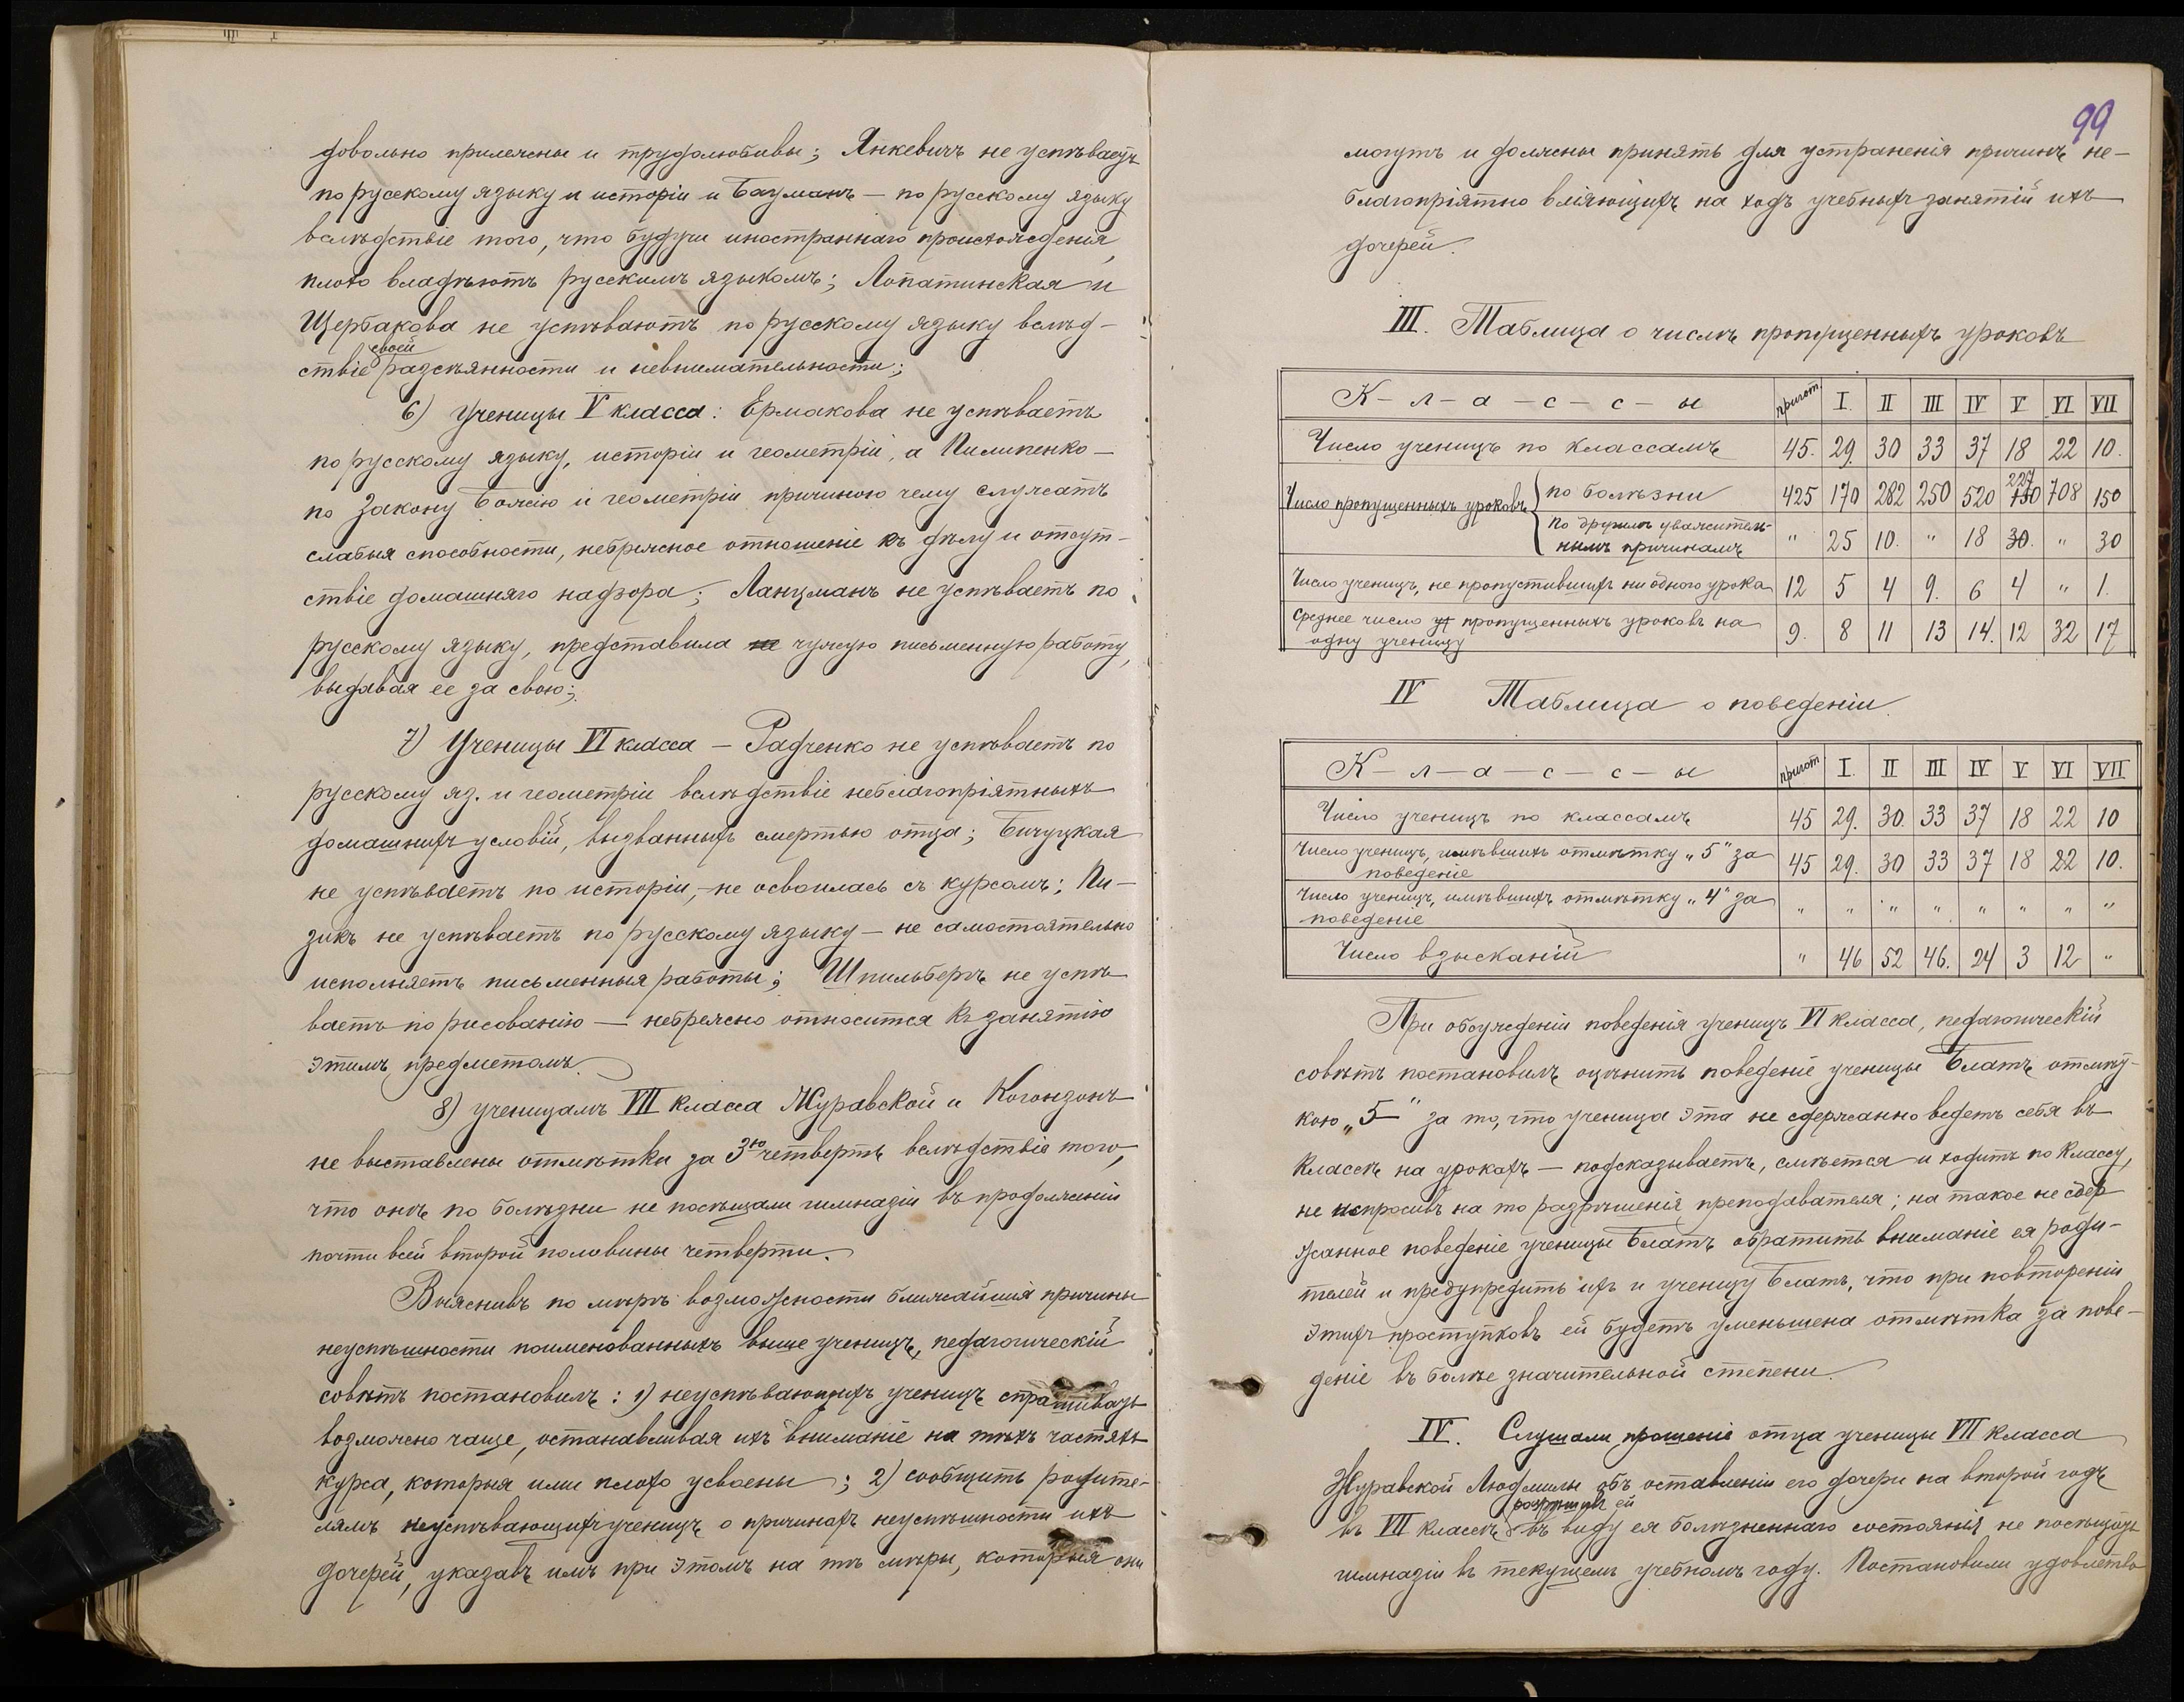 довольно прилежны и трудолюбивы; Янкевичъ не успѣваетъ
по русскому языку и исторіи и Бауманъ — по русскому языку
вслѣдствіе того, что будучи иностраннаго происхожденія,
плохо владѣютъ русскимъ языкомъ; Лопатинская и
Щербакова не успѣваютъ по русскому языку вслѣд-
своей
ствіе разсѣянности и невнимательности;
6) Ученицы V класса: Ермакова не успѣваетъ
по русскому языку, исторіи и геометріи, а Пилипенко —
по Закону Божію и геометріи причиною чему служатъ
слабыя способности, небрежное отношеніе къ дѣлу и отсут-
ствіе домашняго надзора; Ланцманъ не успѣваетъ по
русскому языку, представила не чужую письменную работу,
выдавая ее за свою;
7) Ученицы VI класса — Радченко не успѣваетъ по
русскому яз. и геометріи вслѣдствіе неблагопріятныхъ
домашнихъ условій, вызванныхъ смертью отца; Бичуцкая
не успѣваетъ по исторіи, — не освоилась съ курсомъ; Пи-
зикъ не успѣваетъ по русскому языку — не самостоятельно
исполняетъ письменныя работы; Шпильбергъ не успѣ-
ваетъ по рисованію — небрежно относится къ занятію
этимъ предметомъ.
8) ученицамъ VII класса Журавской и Когонзонъ
не выставлены отмѣтки за 3ю четверть вслѣдствіе того,
что онѣ по болѣзни не посѣщали гимназіи въ продолженіи
почти всей второй половины четверти.
Выяснивъ по мѣрѣ возможности ближайшія причины
неуспѣшности поименованныхъ выше ученицъ, педагогическій
совѣтъ постановилъ: 1) неуспѣвающихъ ученицъ спрашивать
возможно чаще, останавливая ихъ вниманіе на тѣхъ частяхъ
курса, которыя ими плохо усвоены; 2) сообщить родите-
лямъ неуспѣвающихъ ученицъ о причинахъ неуспѣшности ихъ
дочерей, указавъ имъ при этомъ на тѣ мѣры, которыя они
99
могутъ и должны принять для устраненія причинъ не-
благопріятно вліяющихъ на ходъ учебныхъ занятій ихъ
дочерей.
III. Таблица о числѣ пропущенныхъ уроковъ
К – л – а – с – с – ы пригот. I. II III IV V VI VII
Число ученицъ по классамъ 45. 29. 30 33 37 18 22 10.
227
Число пропущенныхъ уроковъ по болѣзни 425 170 282 250 520 130 708 150
по другимъ уважитель-
нымъ причинамъ „ 25 10. „ 18 30. „ 30
Число ученицъ, не пропустившихъ ни одного урока 12 5 4 9. 6 4 „ 1.
Среднее число ур пропущенныхъ уроковъ на
одну ученицу 9. 8 11 13 14. 12 32 17
IV Таблица о поведеніи.
К – л – а – с – с – ы пригот I. II III IV V VI VII
Число ученицъ по классамъ 45 29. 30. 33 37 18 22 10
Число ученицъ, имѣвшихъ отмѣтку „5" за
поведеніе 45 29. 30 33 37 18 22 10.
Число ученицъ, имѣвшихъ отмѣтку „4" за
поведеніе „ „ „ „ „ „ „ „
Число взысканій „ 46 52 46. 24 3 12 „
При обсужденіи поведенія ученицъ VI класса, педагогическій
совѣтъ постановилъ оцѣнить поведеніе ученицы Блатъ отмѣт-
кою „5–" за то, что ученица эта не сдержанно ведетъ себя въ
классѣ на урокахъ — подсказываетъ, смѣется и ходитъ по классу,
не испросивъ на то разрѣшенія преподавателя; на такое не сдер
жанное поведеніе ученицы Блатъ обратить вниманіе ея роди-
телей и предупредить ихъ и ученицу Блатъ, что при повтореніи
этихъ проступковъ ей будетъ уменьшена отмѣтка за пове-
деніе въ болѣе значительной степени.
IV. Слушали прошеніе отца ученицы VII класса
Журавской Людмилы объ оставленіи его дочери на второй годъ
разрѣшивъ ей
въ VII классѣ въ виду ея болѣзненнаго состоянія не посѣщать
гимназіи въ текущемъ учебномъ году. Постановили удовлетво